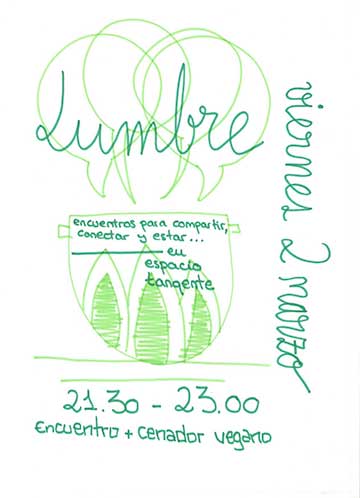 Lumbre
viernes 2 marzo
encuentros para compartir,
conectar y estar...
en
espacio
tangente
21.30 - 23.00
Encuentro + cenador vegano